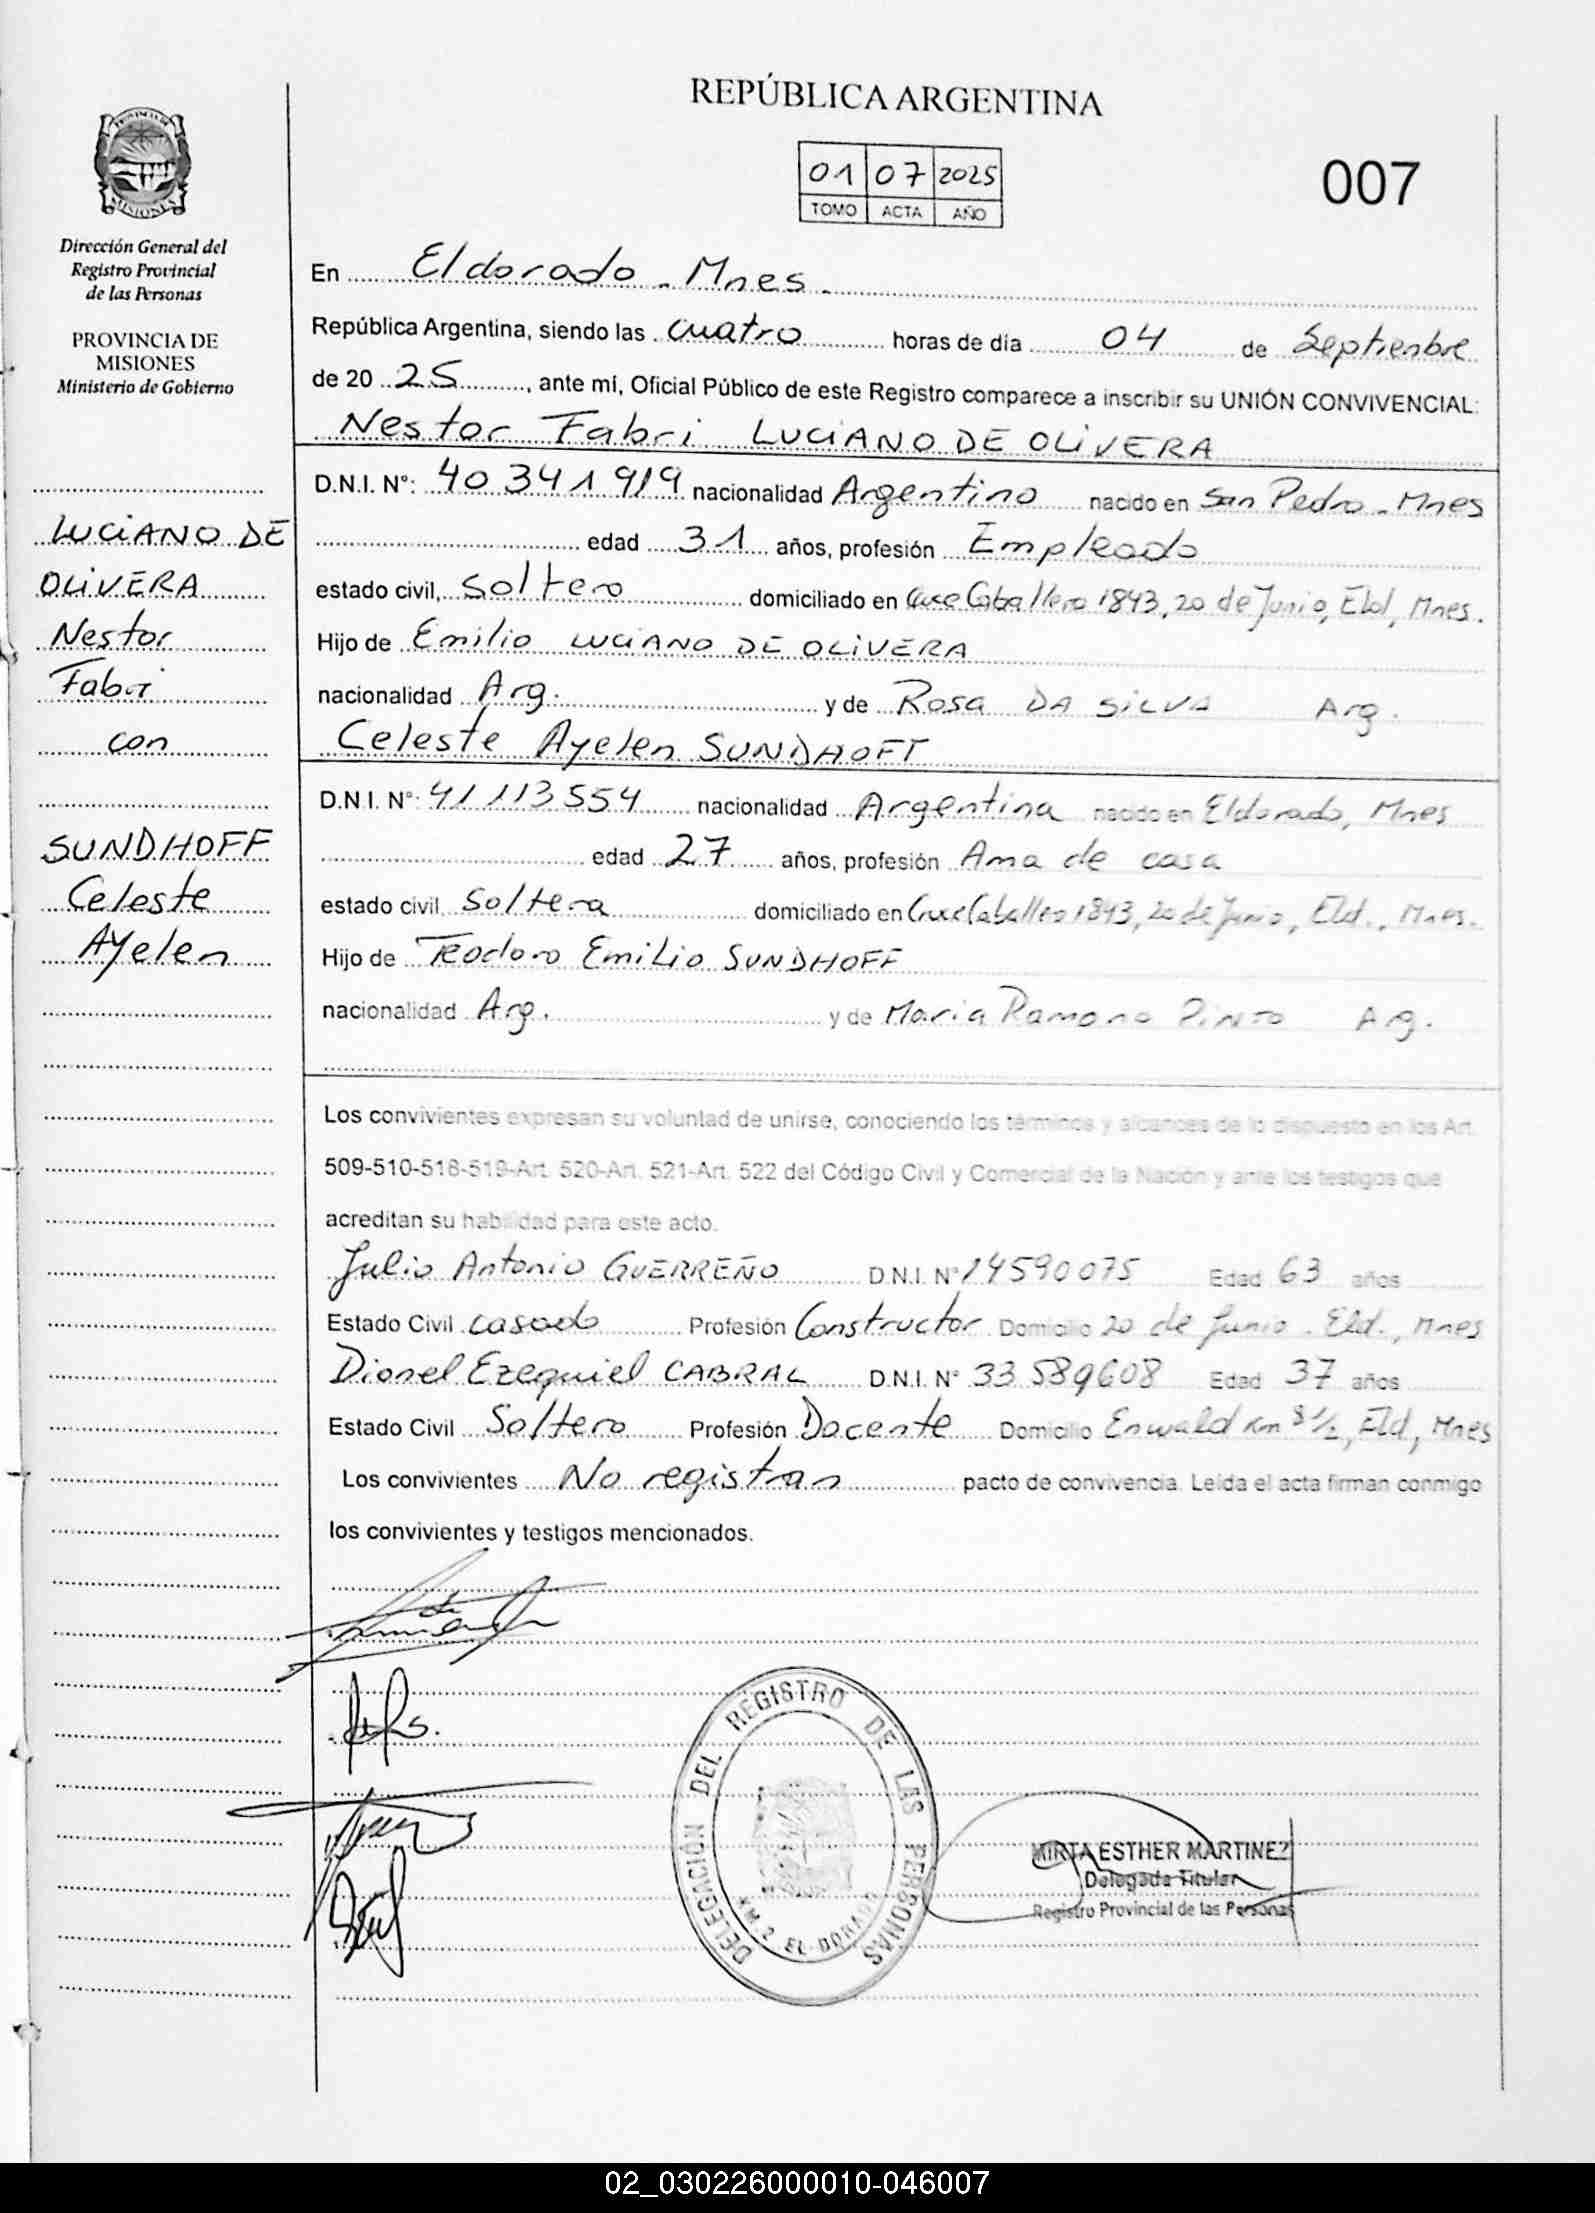 REPÚBLICA ARGENTINA
01 07 2025
TOMO ACTA AÑO
007
PROVINCIA DE MISIONES
Dirección General del
Registro Provincial
de las Personas
PROVINCIA DE
MISIONES
Ministerio de Gobierno
LUCIANO DE
OLIVERA
Nestor
Fabri
con
SUNDHOFF
Celeste
Ayelen
En Eldorado - Mnes.
República Argentina, siendo las cuatro horas de día 04 de Septienbre
de 20 25, ante mí, Oficial Público de este Registro comparece a inscribir su UNIÓN CONVIVENCIAL:
Nestor Fabri LUCIANO DE OLIVERA
D.N.I. N°: 40 341 919 nacionalidad Argentino nacido en San Pedro - Mnes
edad 31 años, profesión Empleado
estado civil, Soltero domiciliado en Cruce Caballero 1843, 20 de Junio, Eld, Mnes.
Hijo de Emilio LUCIANO DE OLIVERA
nacionalidad Arg. y de Rosa DA SILVA Arg.
Celeste Ayelen SUNDHOFT
D.N.I. N°: 41 113 554 nacionalidad Argentina nacido en Eldorado, Mnes
edad 27 años, profesión Ama de casa
estado civil Soltera domiciliado en Cruce Caballero 1843, 20 de Junio, Eld., Mnes.
Hijo de Teodoro Emilio SUNDHOFF
nacionalidad Arg. y de Maria Ramona PINTO Arg.
Los convivientes expresan su voluntad de unirse, conociendo los términos y alcances de lo dispuesto en los Art.
509-510-518-519-Art. 520-Art. 521-Art. 522 del Código Civil y Comercial de la Nación y ante los testigos que
acreditan su habilidad para este acto.
Julio Antonio GUERREÑO D.N.I. N° 14590075 Edad 63 años
Estado Civil casado Profesión Constructor Domicilio 20 de Junio. Eld., Mnes
Dionel Ezequiel CABRAL D.N.I. N° 33 589608 Edad 37 años
Estado Civil Soltero Profesión Docente Domicilio Enwald km 8 1/2, Eld, Mnes
Los convivientes No registran pacto de convivencia. Leída el acta firman conmigo
los convivientes y testigos mencionados.
DELEGACIÓN DEL REGISTRO DE LAS PERSONAS
KM. 2 EL DORADO
MIRTA ESTHER MARTINEZ
Delegada Titular
Registro Provincial de las Personas
02_030226000010-046007